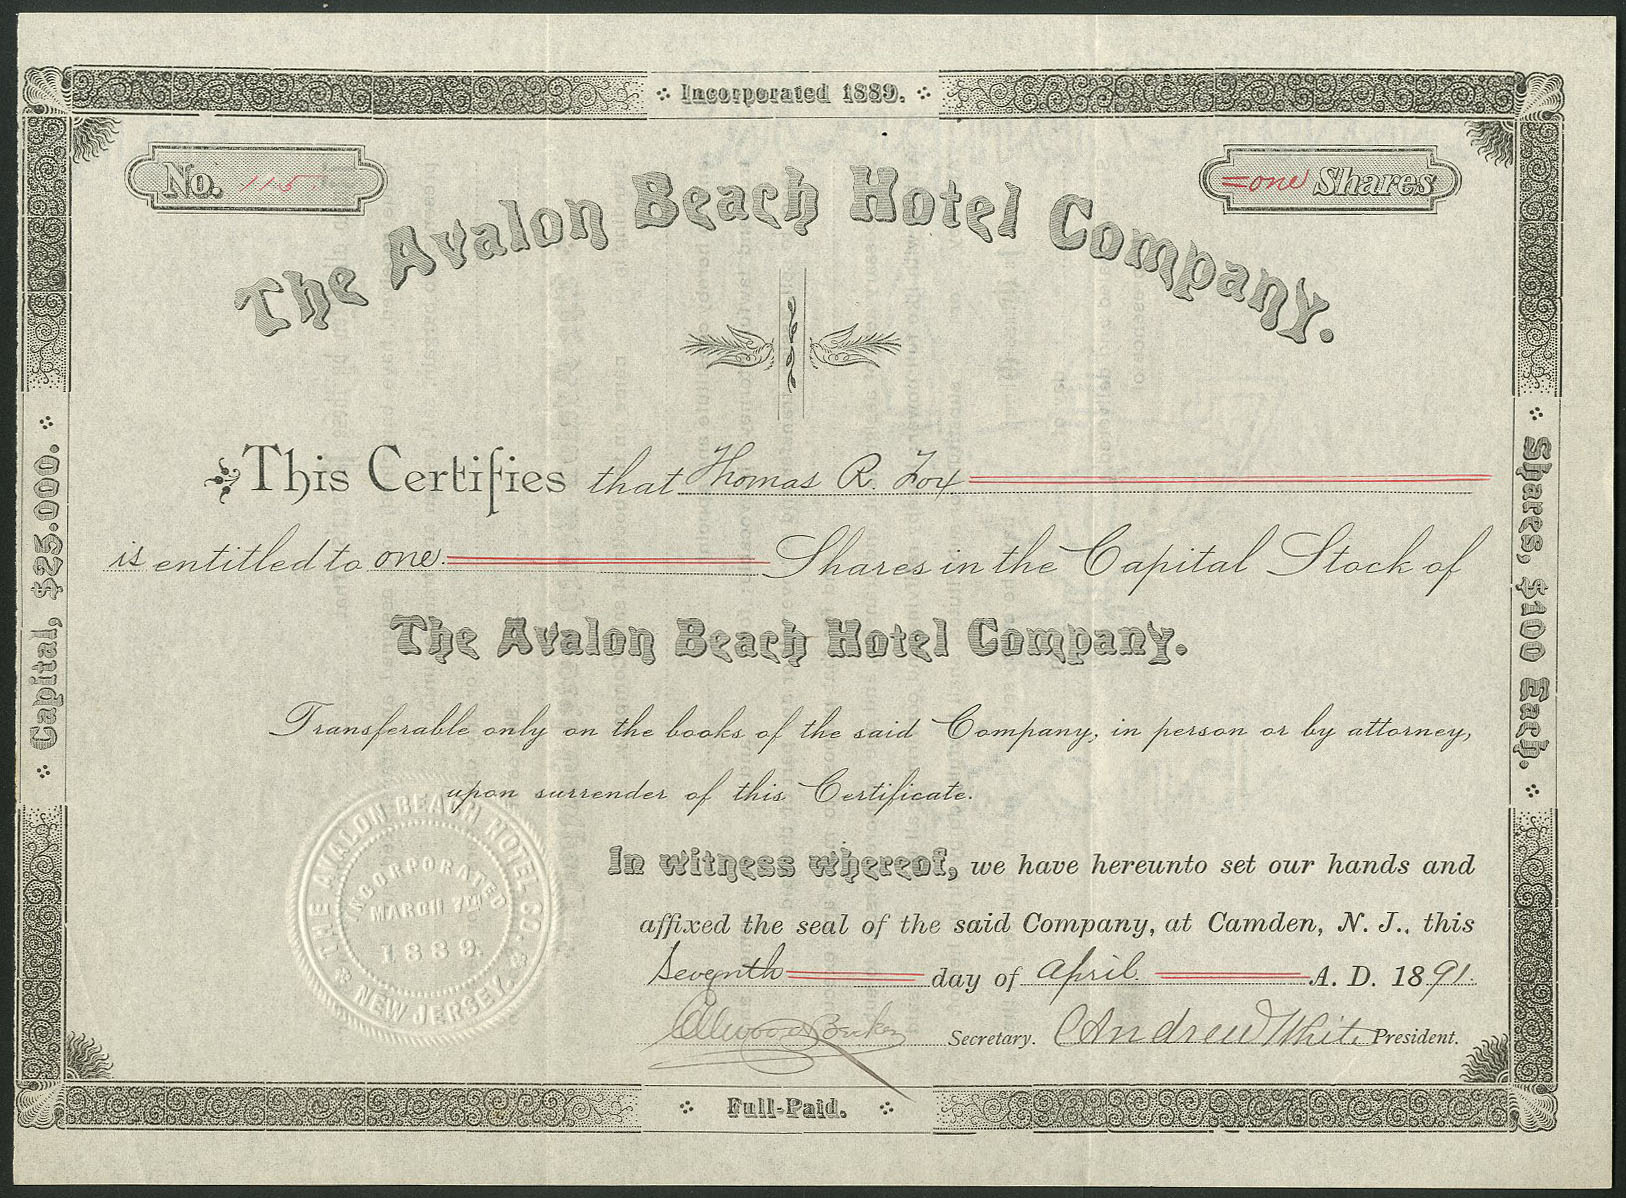 Incorporated 1889.
No. 115.
=one Shares
The Avalon Beach Hotel Company.
This Certifies that Thomas R. Fox
is entitled to one. Shares in the Capital Stock of
The Avalon Beach Hotel Company.
Transferable only on the books of the said Company, in person or by attorney,
upon surrender of this Certificate.
In witness whereof, we have hereunto set our hands and
affixed the seal of the said Company, at Camden, N. J., this
Seventh day of April. A. D. 1891.
Secretary. Andrew White President.
Full-Paid.
Capital, $25.000.
Shares, $100 Each.
THE AVALON BEACH HOTEL CO.
NEW JERSEY.
INCORPORATED
MARCH 7TH
1889.